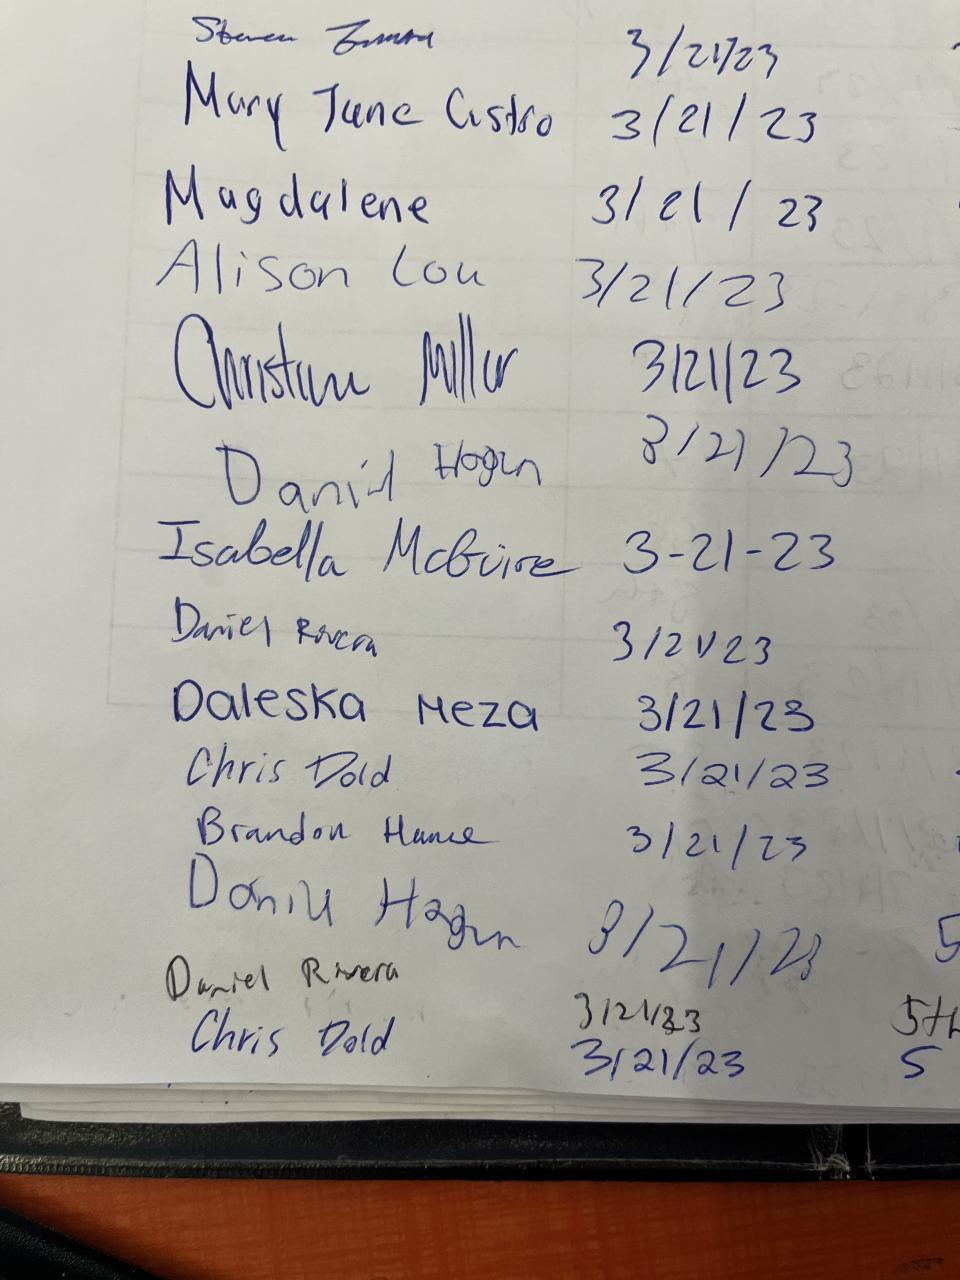 Steven 3/21/23
Mary Jane Castro 3/21/23
Magdalene 3/21/23
Alison Lou 3/21/23
Christian Miller 3/21/23
Daniel Hogan 3/21/23
Isabella McGuire 3-21-23
Daniel Rivera 3/21/23
Daleska Meza 3/21/23
Chris Dold 3/21/23
Brandon 3/21/23
Daniel Hagan 3/21/23 5
Daniel Rivera 3/21/23 5th
Chris Dold 3/21/23 5